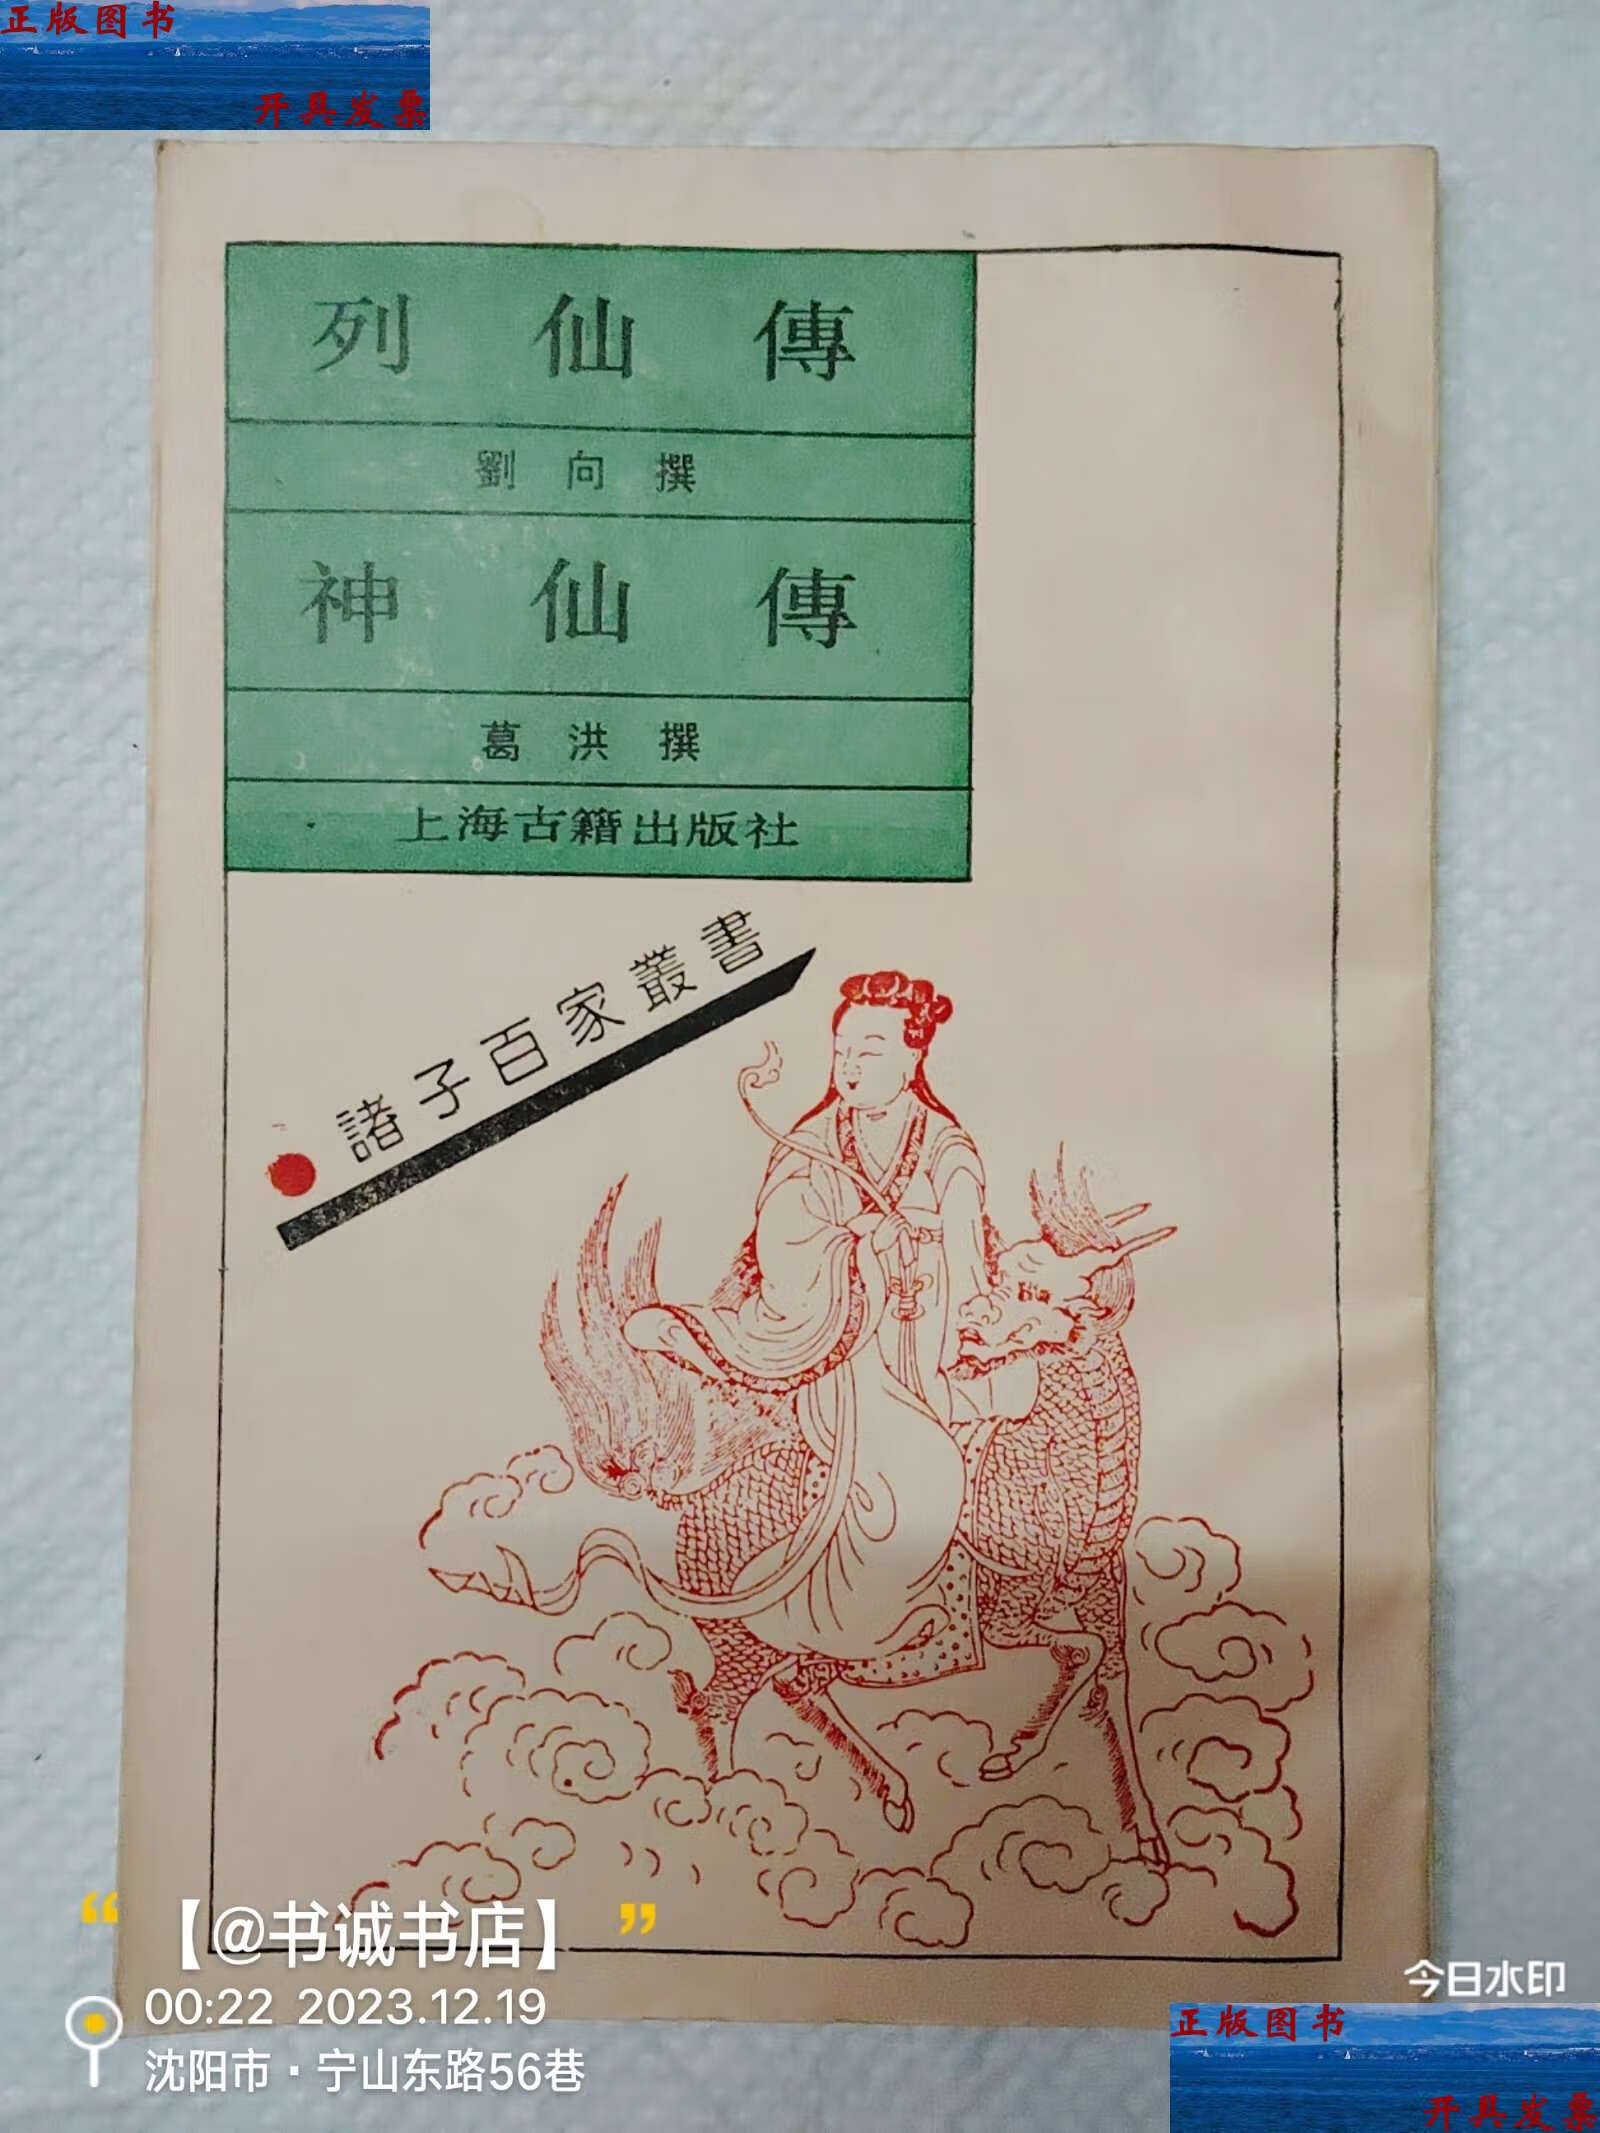 正版图书
开具发票
列仙傳
劉向撰
神仙傳
葛洪撰
上海古籍出版社
諸子百家叢書
“【@书诚书店】”
00:22 2023.12.19
沈阳市·宁山东路56巷
今日水印
正版图书
开具发票